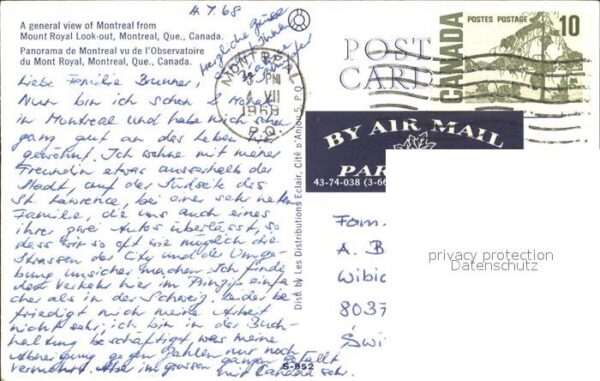 4.7.68
A general view of Montreal from
Mount Royal Look-out, Montreal, Que., Canada.
Panorama de Montreal vu de l'Observatoire
du Mont Royal, Montreal, Que., Canada.
Liebe Familie Brunner,
Nun bin ich schon 2 Monate
in Montreal und habe mich schon
ganz gut an das Leben hier
gewöhnt. Ich wohne mit meiner
Freundin etwas ausserhalb der
Stadt, auf der Südseite des
St. Lawrence, bei einer sehr netten
Familie, die uns auch eines
ihrer zwei Autos überlässt, so
dass wir so oft wie möglich die
Strassen der City und der Umge-
bung unsicher machen. Ich finde
den Verkehr hier im Prinzip einfa-
cher als in der Schweiz. Leider be-
friedigt mich meine Arbeit
nicht sehr; ich bin in der Buch-
haltung beschäftigt, was meine
Abneigung gegen Zahlen nur noch
vermehrt. Aber im grossen ganzen gefällt
mir Canada sehr.
herzliche Grüsse
Ihnen
MONTREAL
PM
4 VII
1968
P.Q.
Dist by Les Distributions Eclair, Cité d'Anjou 5, P.Q.
S-952
POST
CARD
POSTES POSTAGE
10
CANADA
BY AIR MAIL
PAR
43-74-038 (3-66
Fam.
A. B
Wibic
8037
Swi
privacy protection
Datenschutz